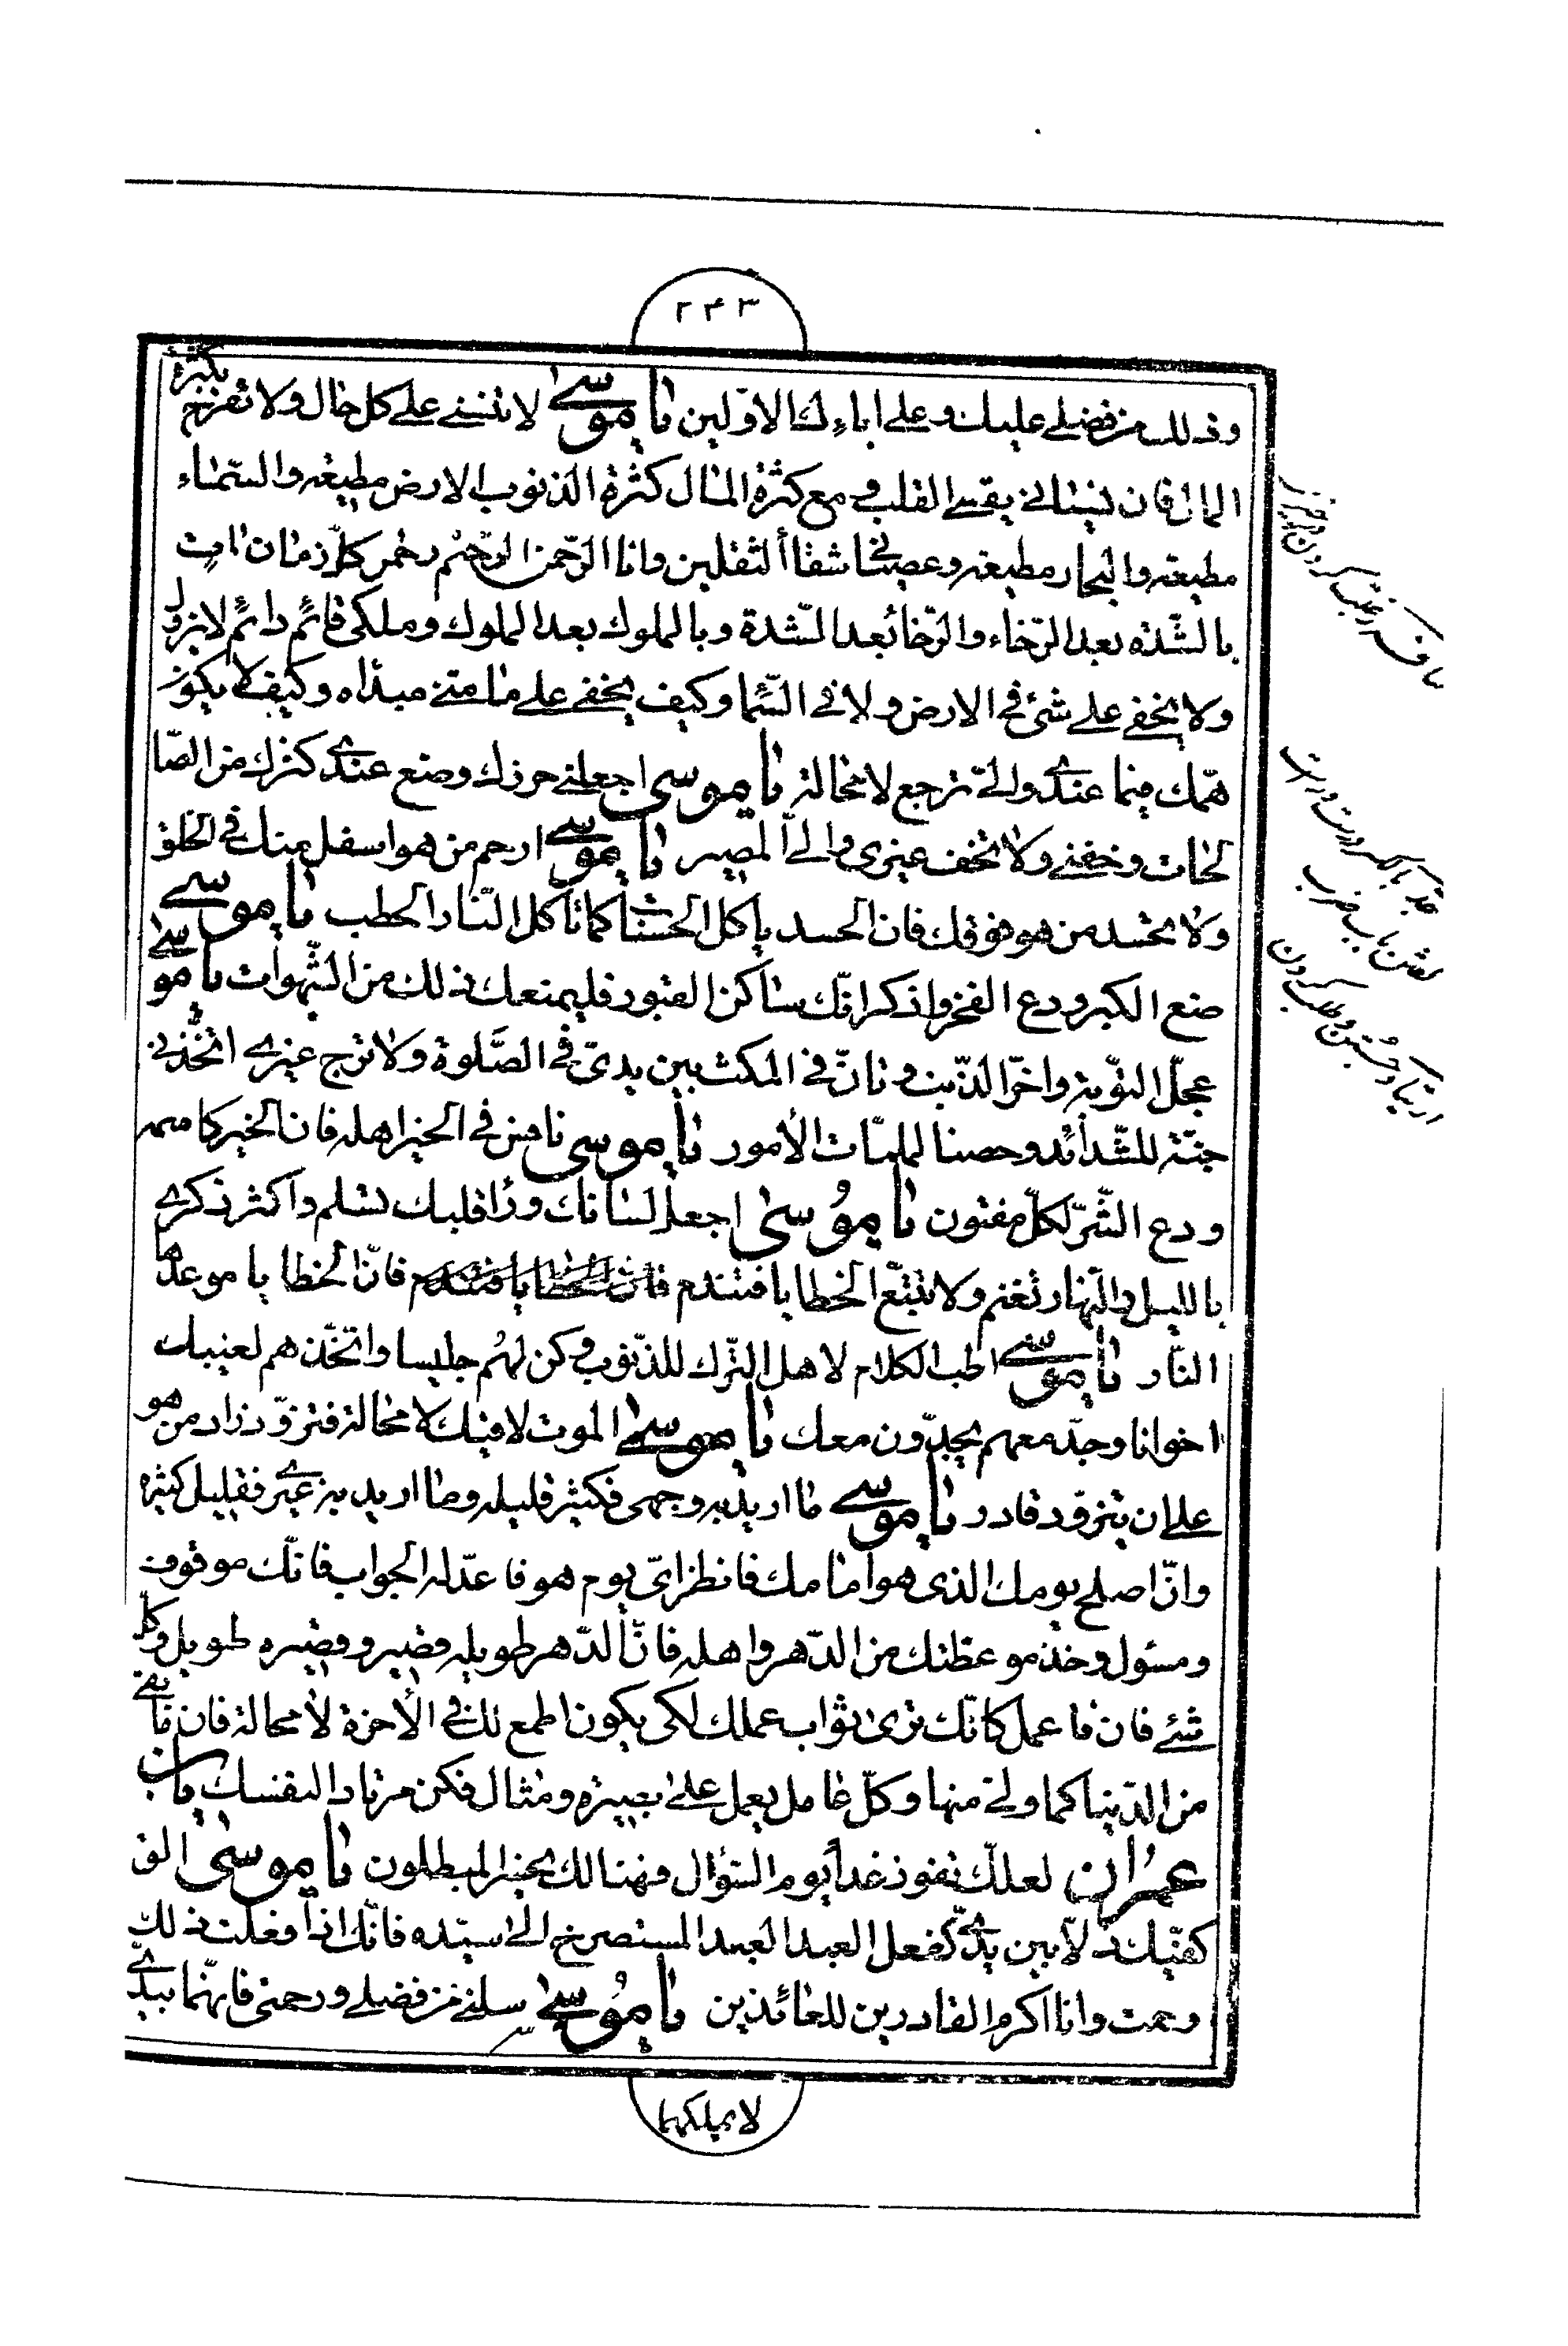 ٢٤٣
وذلك من فضلي عليك وعلى اباءك الاوّلين يا موسى لا تنسني على كل حال ولا تفرح بكثرة
المال فان نسياني يقسي القلب و مع كثرة المال كثرة الذنوب الارض مطيعه والسّماء
مطيعه والبحار مطيعه وعصياني شقاأ لثقلين وانا الرّحمن الرّحيم رحمن كلّ زمان اتٍ
بالشّدّه بعد الرّخاء والرّخا بعد الشّدة وبالملوك بعد الملوك وملكي قائم دائم لا يزول
ولا يخفى على شئ في الارض ولا في السّما وكيف يخفى على ما منّي مبدأه وكيف لا يكون
همّك فيما عندي والىّ ترجع لا محالة يا موسى اجعلني حرزك وضع عندي كنزك من الصّا
لحات وخفني ولا تخف غيرى والىّ المصير يا موسى ارحم من هو اسفل منك في الخلق
ولا تحسد من هو فوقك فان الحسد ياكل الحسنات كما تاكل النّار الحطب يا موسى
ضع الكبر ودع الفخر واذكر انّك ساكن القبور فليمنعك ذلك من الشّهوات يا موسى
عجّل التّوبة واخّر الذّنب وتانّ في المكث بين يدىّ في الصّلوة ولا ترج غيري اتّخذني
جنّة للشّدائد وحصنا لملمّات الأمور يا موسى نافس في الخير اهله فان الخير كاسمه
ودع الشّرّ لكلّ مفتون يا موسى اجعل لسانك ورأ قلبك تسلم واكثر ذكري
بالليل والنّهار تغنم ولا تتّبع الخطايا فتندم فانّ الخطايا فتندم فانّ الخطايا موعدها
النّار يا موسى اطب الكلام لاهل التّرك للذّنوب وكن لهم جليسا واتّخذهم لغيبك
اخوانا وجدّ معهم يجدّون معك يا موسى الموت لاقيك لا محالة فتزوّد زاد من هو
على ان يتزوّد قادر يا موسى ما اريد به وجهى فكثير قليله وما اريد به غيري فقليل كثيره
وانّ اصلح يومك الذى هو امامك فانظر اىّ يوم هو فاعدّ له الجواب فانّك موقوف
ومسئول وخذ موعظتك من الدّهر واهله فانّ الدّهر طويله قصير وقصيره طويل وكلّ
شئ فان فاعمل كانّك ترى ثواب عملك لكى يكون اطمع لك في الأخرة لا محالة فان ما بقي
من الدّنيا كما ولّى منها وكلّ عامل يعمل على بصيرة ومثال فكن مرتادا لنفسك يابن
عمران لعلّك تفوز غداً يوم السّؤال فهنالك يخسر المبطلون يا موسى الق
كفّيك ذلاّ بين يدىّ كفعل العبد العبد المستصرخ الى سيّده فانّك اذا فعلت ذلك
رحمت وانا اكرم القادرين للعائذين يا موسى سلني من فضلي ورحمتى فانّهما بيدي
لا يملكهما